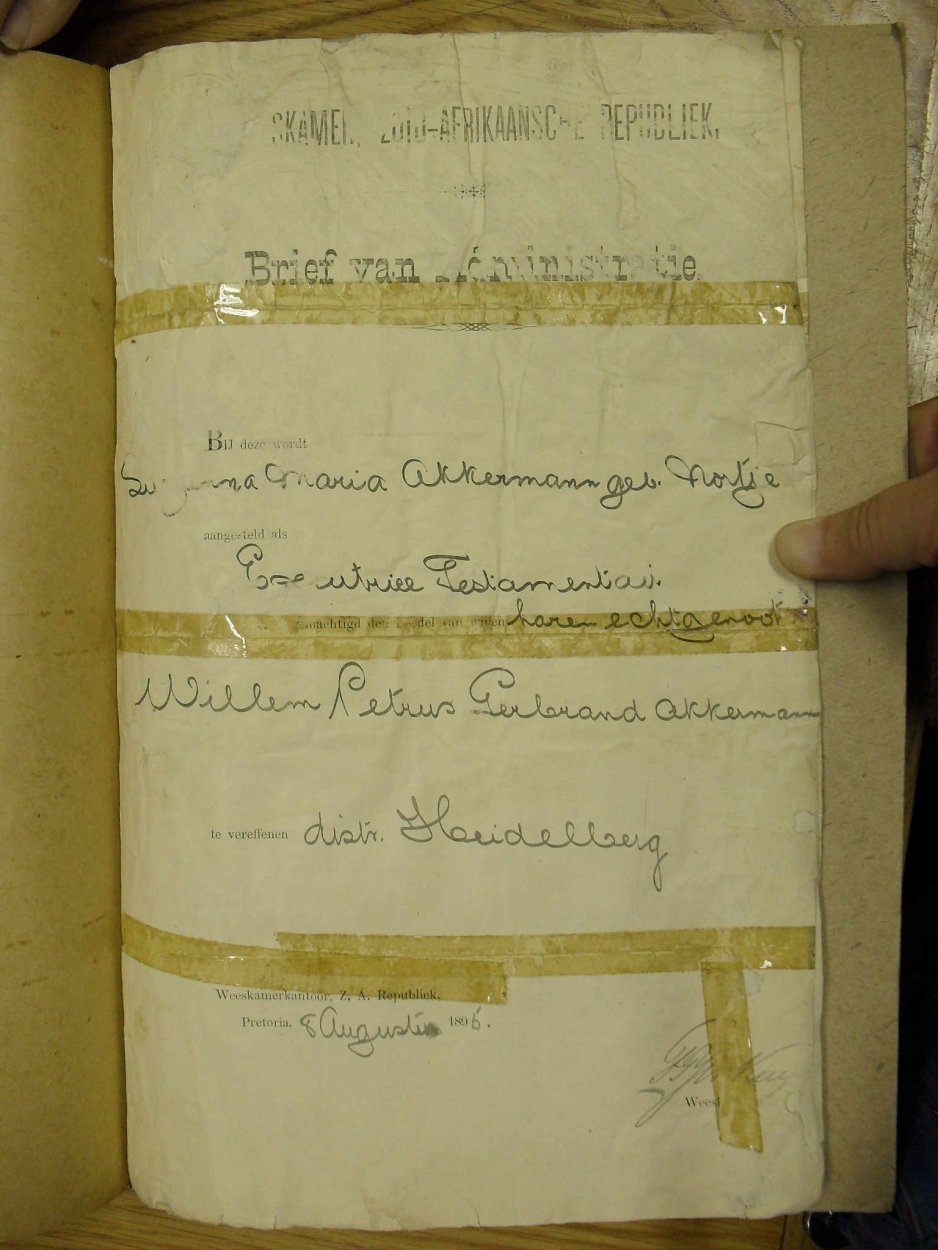 SKAMER, ZUID-AFRIKAANSCHE REPUBLIEK.
Brief van Administratie.
BIJ deze wordt
Suzanna Maria Akkermann geb. Nortje
aangesteld als
Executrice Testamentair
gemachtigd den boedel van wijlen haren echtgenoot
Willem Petrus Gerbrand Akkermann
te vereffenen distr. Heidelberg
Weeskamerkantoor, Z. A. Republiek,
Pretoria, 8 Augustus 1896.
Wees